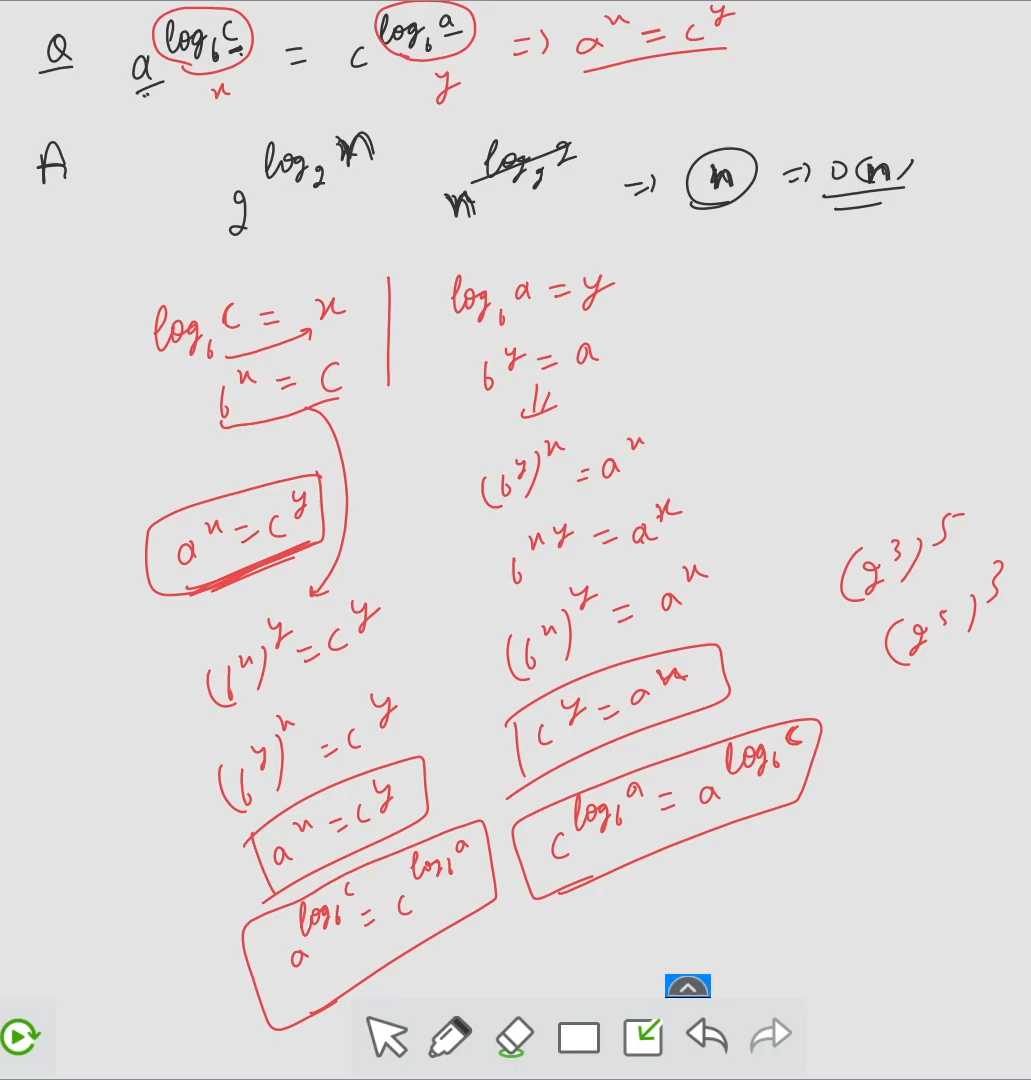 Q a^(log_b c) = c^(log_b a) => a^x = c^y
x y
A 2^(log_2 n) n^(log_2 2) => n => O(n)
log_b c = x
b^x = c
a^x = c^y
(b^x)^y = c^y
(b^y)^x = c^y
a^x = c^y
a^(log_b c) = c^(log_b a)
log_b a = y
b^y = a
⇓
(b^y)^x = a^x
b^(xy) = a^x
(b^x)^y = a^x
c^y = a^x
c^(log_b a) = a^(log_b c)
(2^3)^5
(2^5)^3